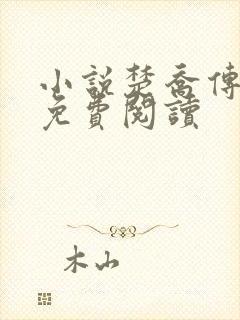 小說楚喬傳
免費閱讀
木山